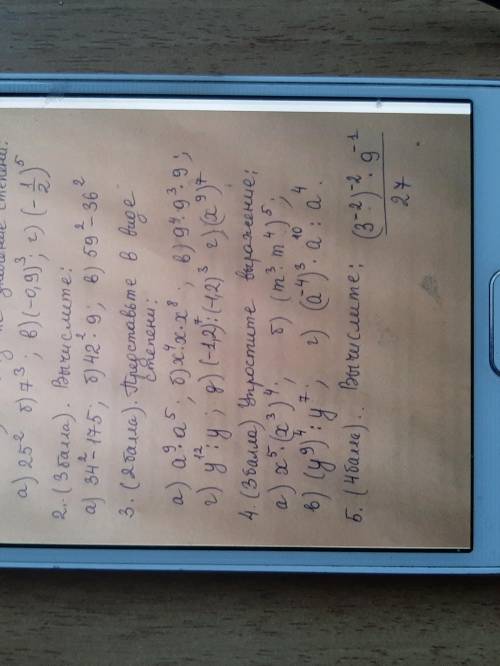 значение степени:
а) 25² б) 7³; в) (-0,9)³; г) (-1/2)⁵
2. (3 балла) Вычислите:
а) 34² - 175; б) 42² : 9; в) 59² - 36²
3. (2 балла) Представьте в виде
степени:
а) a⁹ : a⁵; б) x⁴ · x · x⁸; в) 9⁴ · 9³ · 9;
г) y¹² : y; д) (-1,2)⁷ : (-1,2)³ г) (x⁹)⁷
4. (3 балла) Упростите выражение:
а) x⁵ · (x³)⁴; б) (m³ · m⁴)⁵;
в) (y⁹)⁴ : y⁷. г) (a⁻⁴)³ · a¹⁰ : a⁴.
5. (4 балла). Вычислите: (3⁻²)⁻² · 9⁻¹ / 27